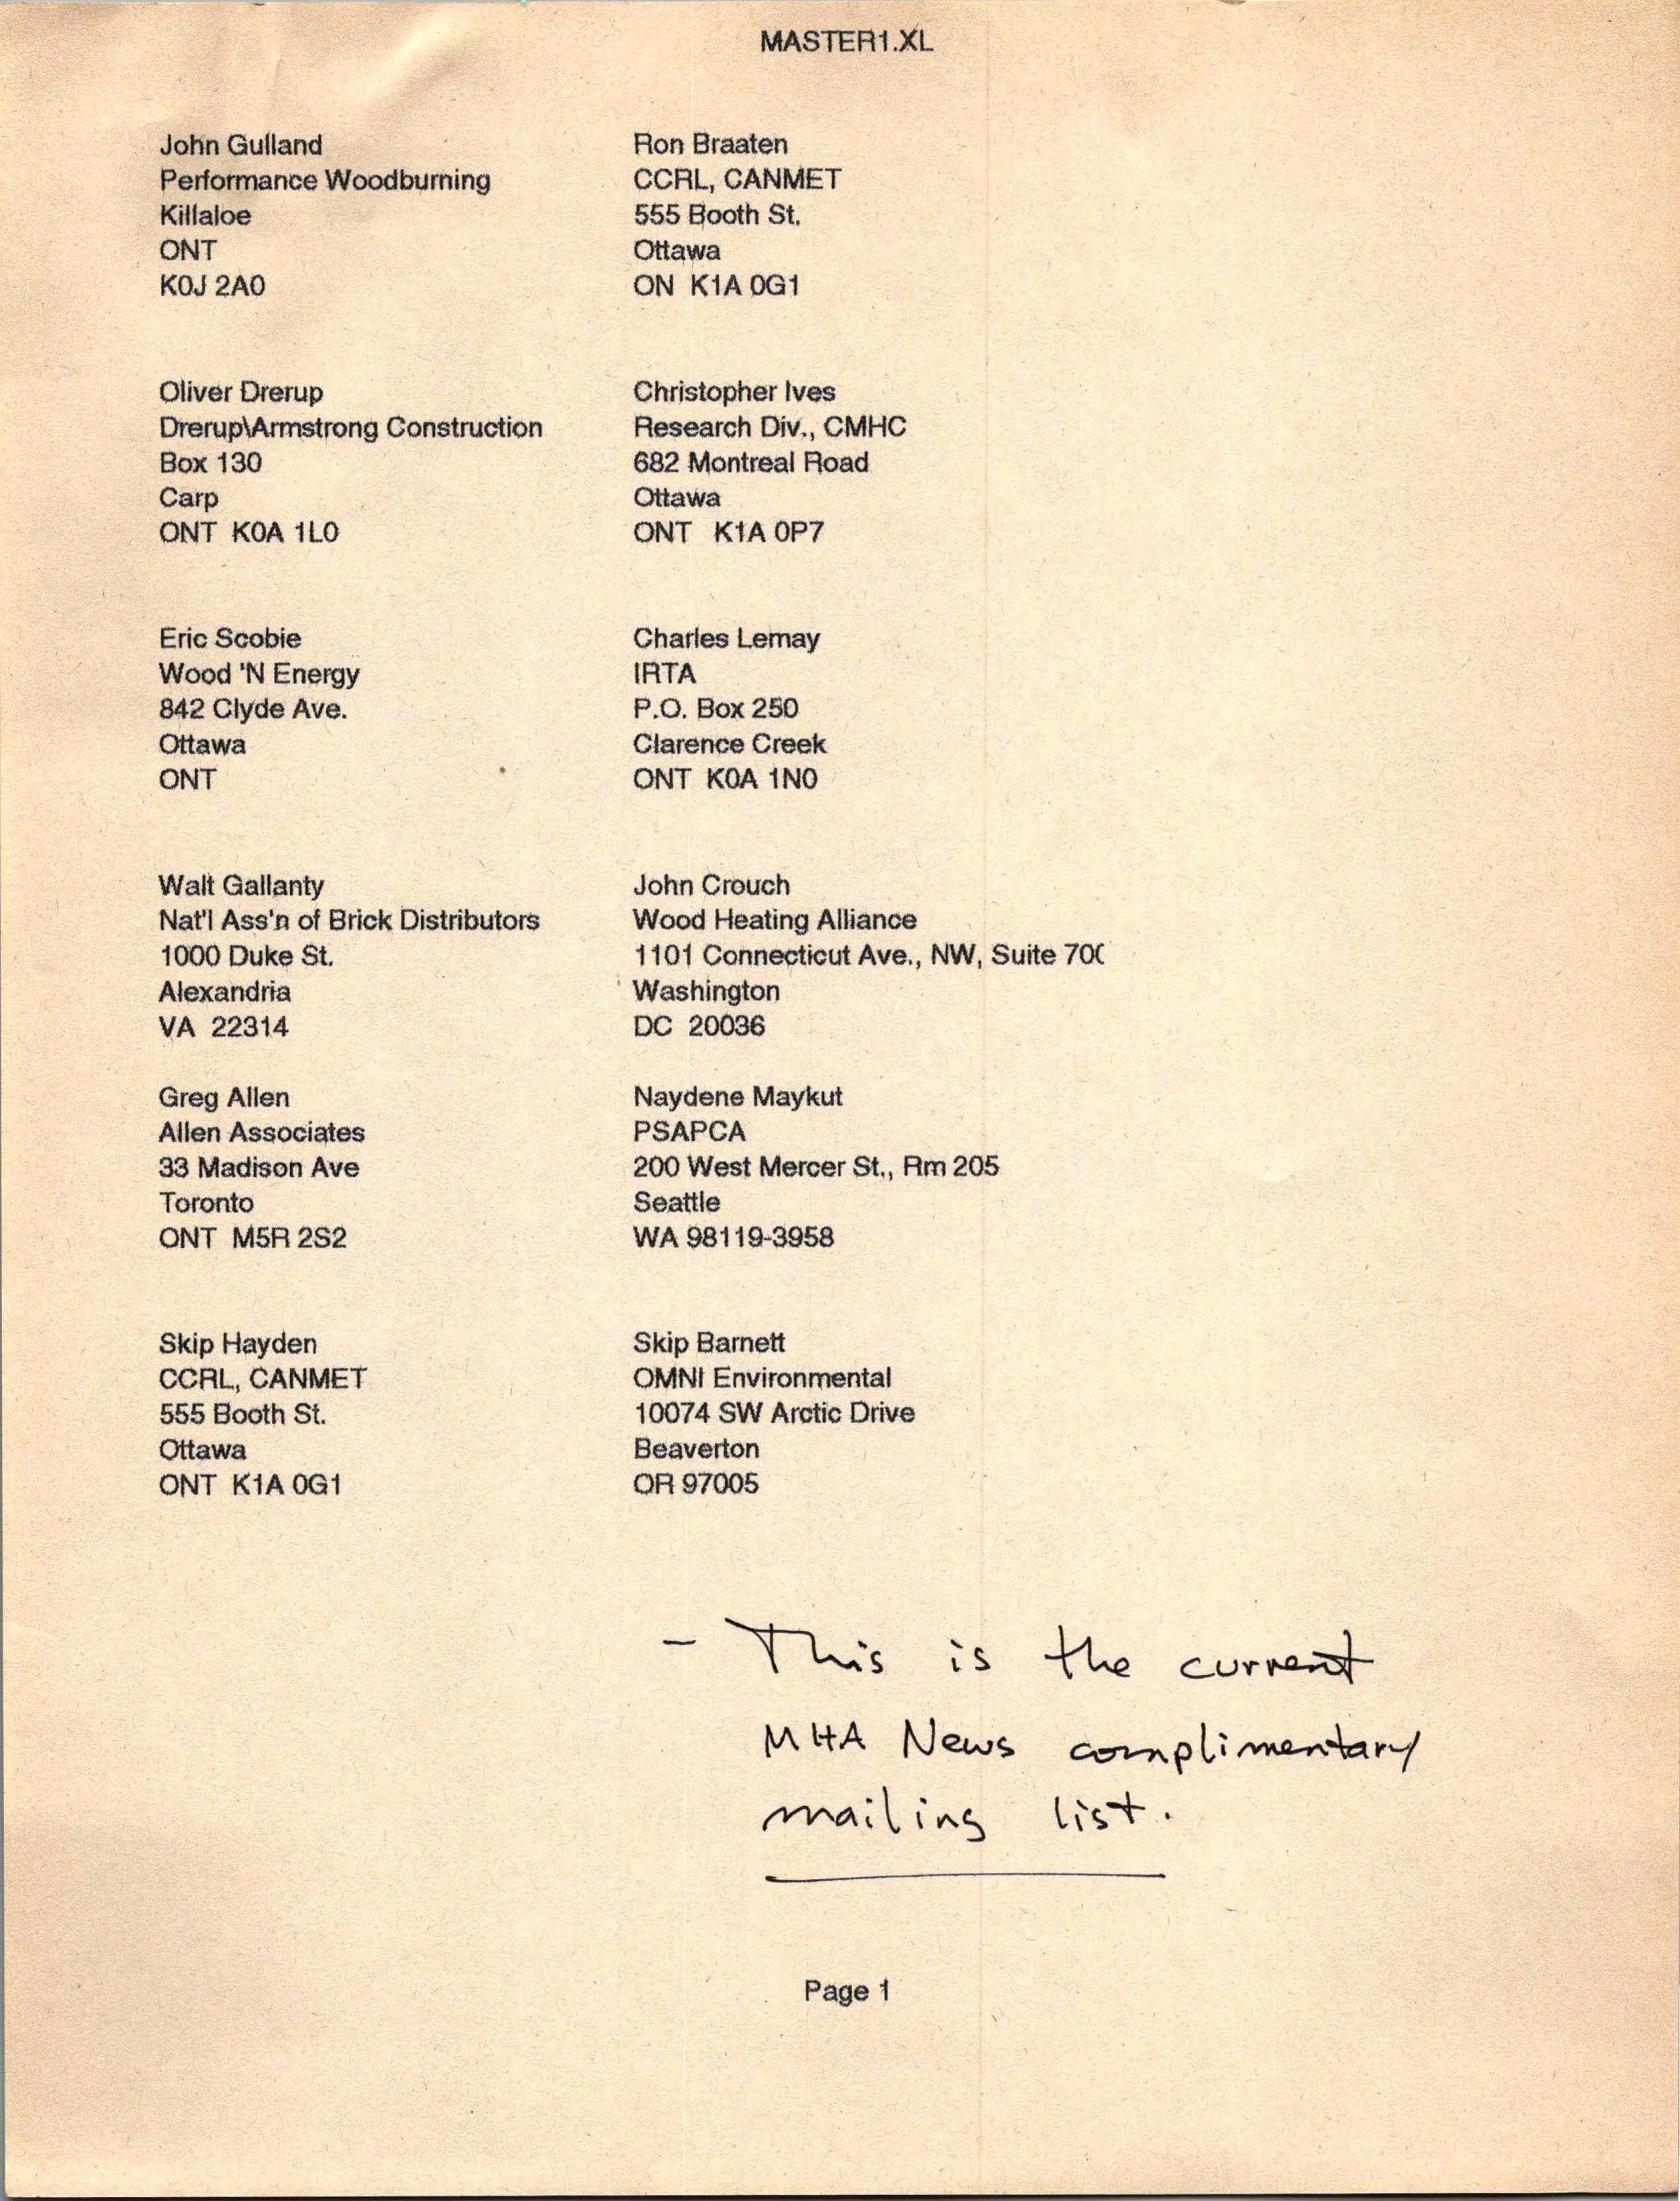 MASTER1.XL
John Gulland
Performance Woodburning
Killaloe
ONT
K0J 2A0
Ron Braaten
CCRL, CANMET
555 Booth St.
Ottawa
ON  K1A 0G1
Oliver Drerup
Drerup\Armstrong Construction
Box 130
Carp
ONT  K0A 1L0
Christopher Ives
Research Div., CMHC
682 Montreal Road
Ottawa
ONT  K1A 0P7
Eric Scobie
Wood 'N Energy
842 Clyde Ave.
Ottawa
ONT
Charles Lemay
IRTA
P.O. Box 250
Clarence Creek
ONT  K0A 1N0
Walt Gallanty
Nat'l Ass'n of Brick Distributors
1000 Duke St.
Alexandria
VA  22314
John Crouch
Wood Heating Alliance
1101 Connecticut Ave., NW, Suite
Washington
DC  20036
Greg Allen
Allen Associates
33 Madison Ave
Toronto
ONT  M5R 2S2
Naydene Maykut
PSAPCA
200 West Mercer St., Rm 205
Seattle
WA 98119-3958
Skip Hayden
CCRL, CANMET
555 Booth St.
Ottawa
ONT  K1A 0G1
Skip Barnett
OMNI Environmental
10074 SW Arctic Drive
Beaverton
OR 97005
- This is the current
MHA News complimentary
mailing list.
Page 1